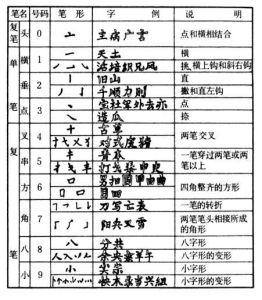 笔名 号码 笔形 字例 说明
复笔 头 0 亠 主病广言 点和横相结合
单笔 横 1 一 天土 横
活培织兄风 挑、横上钩和斜右钩
垂 2 丨 旧山 直
丿 亅 千顺力则 撇和直左钩
点 3 丶 宝社军外去亦 点
造瓜 捺
复笔 叉 4 十 古草 两笔交叉
对式皮猪
串 5 丰 青本 一笔穿过两笔或两笔以上
打戈
方 6 口 四角整齐的方形
角 7 刀写亡表 一笔的转折
阳兵又雪 两笔笔头相接所成的角形
八 8 八 分共 八字形
人入 余央羊午 八字形的变形
小 9 小 尖宗 小字形
快木录当兴组 小字形的变形